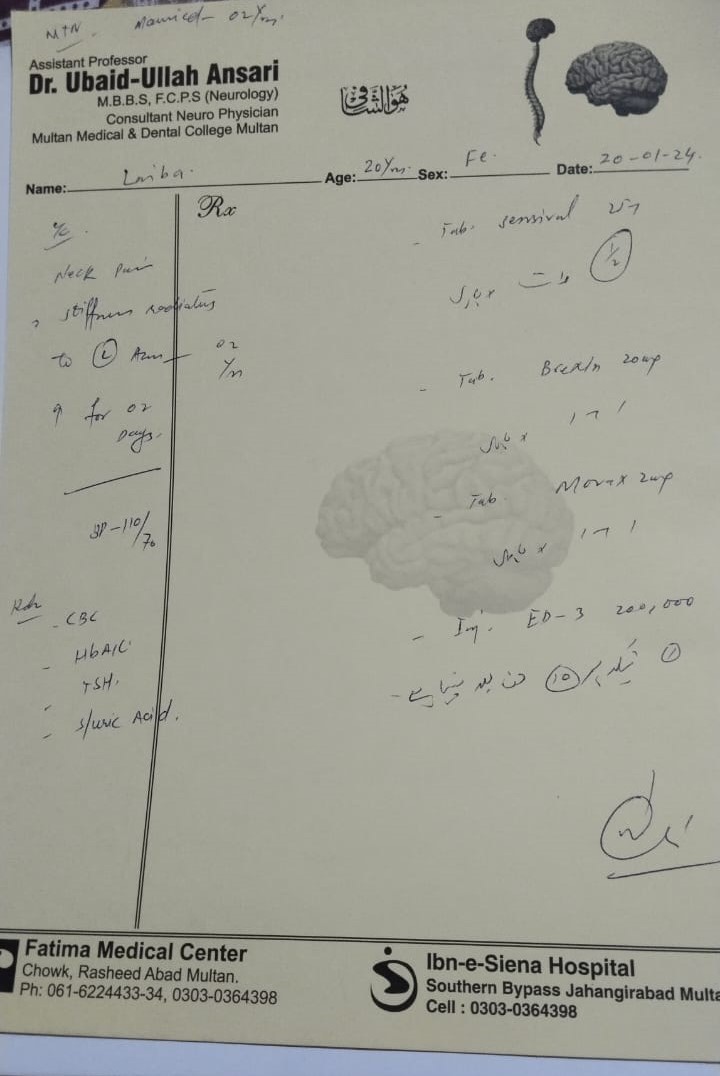 MTN. Married - 02 Yrs.
Assistant Professor
Dr. Ubaid-Ullah Ansari
M.B.B.S, F.C.P.S (Neurology)
Consultant Neuro Physician
Multan Medical & Dental College Multan
ھوالشافی
Name: Laiba. Age: 20 Yrs. Sex: Fe. Date: 20-01-24.
Rx
Neck Pain
stiffness radiates
to L Arm 02
Yrs
↑ for 02
Days.
BP-110/70
- CBC
- HbA1C
- TSH.
- S/uric Acid.
- Tab. Sensival 25
1/2
- Tab. Brexin 20mg
1 - 1
- Tab. Movax 2mg
1 - 1
- Inj. ED-3 200,000
Fatima Medical Center
Chowk, Rasheed Abad Multan.
Ph: 061-6224433-34, 0303-0364398
Ibn-e-Siena Hospital
Southern Bypass Jahangirabad Multa
Cell : 0303-0364398